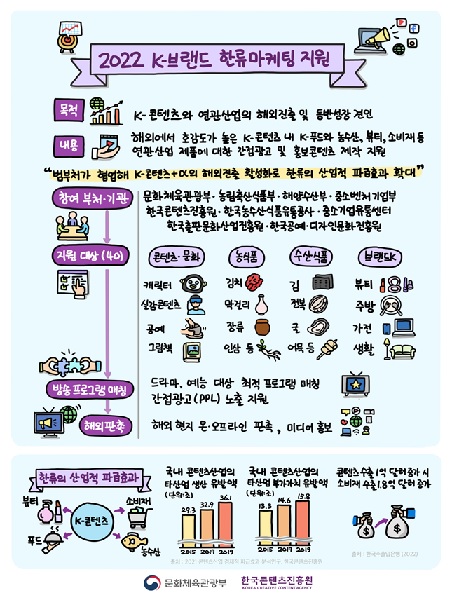 2022 K-브랜드 한류마케팅 지원
목적
K-콘텐츠와 연관산업의 해외진출 및 동반성장 견인
내용
해외에서 호감도가 높은 K-콘텐츠 내 K-푸드와 농수산, 뷰티, 소비재 등
연관 산업 제품에 대한 간접광고 및 홍보콘텐츠 제작 지원
"범부처가 협업해 K-콘텐츠+α의 해외진출 활성화로 한류의 산업적 파급효과 확대"
참여 부처·기관
문화체육관광부·농림축산식품부·해양수산부·중소벤처기업부
한국콘텐츠진흥원·한국농수산식품유통공사·중소기업유통센터
한국출판문화산업진흥원·한국공예·디자인문화진흥원
지원 대상 (40)
콘텐츠·문화
농식품
수산식품
브랜드K
캐릭터
김치
김
뷰티
실감콘텐츠
막걸리
전복
주방
공예
장류
굴
가전
그림책
인삼 등
어묵 등
생활
방송 프로그램 매칭
드라마, 예능 대상 최적 프로그램 매칭
간접광고(PPL) 노출 지원
해외판촉
해외 현지 온·오프라인 판촉, 미디어 홍보
한류의 산업적 파급효과
뷰티
소비재
K-콘텐츠
푸드
농수산
국내 콘텐츠산업의
타산업 생산 유발액
(단위:조)
32.9
36.1
2015
2017
2019
국내 콘텐츠산업의
타산업 부가가치 유발액
(단위:조)
2015
2017
2019
콘텐츠 수출 1억 달러 증가 시
소비재 수출 1.8억 달러 증가
문화체육관광부
한국콘텐츠진흥원